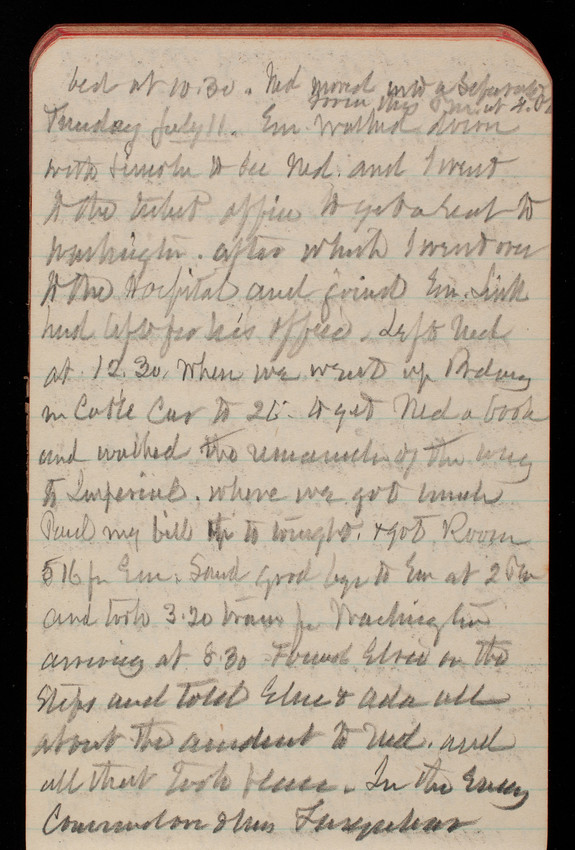 bed at 10.30. Ned moved into a Separate
Room this P.M. at 4.
Tuesday July 11. Em walked down
with Lincoln to see Ned. and I went
to the ticket office to get a seat to
Washington. after which I went over
to the Hospital and joined Em. Link
had left for his office. Left Ned
at 12.30. when we went up Bdway
in Cable Car to 25. to get Ned a book
and walked the remainder of the way
to Imperial. where we got lunch
Paid my bill up to tonight. & got Room
516 for Em. Said good bye to Em at 2 Pm
and took 3.20 train for Washington
arriving at 8.30 Found Elsie on the
Steps and told Elsie & Ada all
about the accident to Ned. and
all that took place. In the Eveng
Commodore & Mrs Farquhar